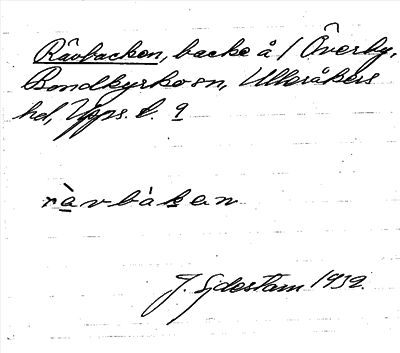 Rävbacken, backe å / Överby,
Bondkyrko sn, Ulleråkers
hd, Upps. l. 9
rävbàkan
J. Sjdestam 1932.